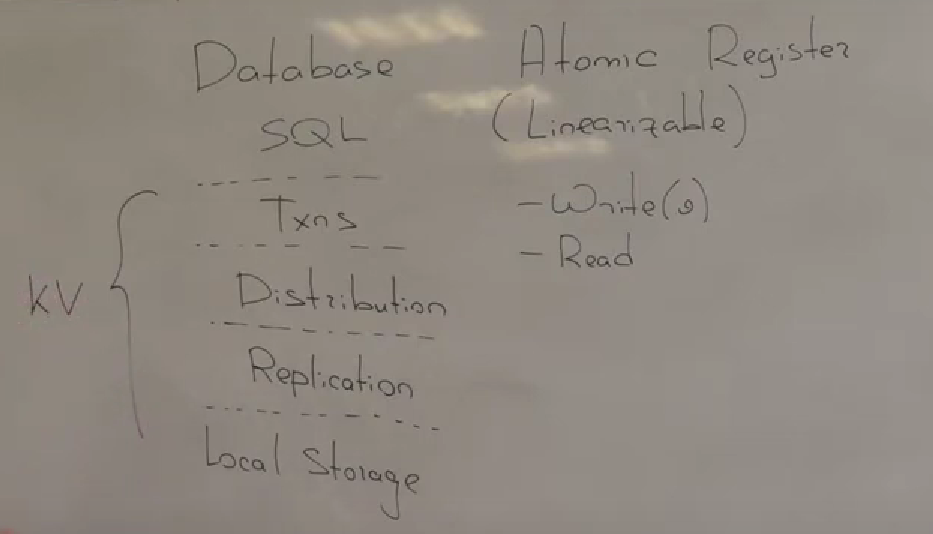 Database
SQL
Txns
KV
Distribution
Replication
Local Storage
Atomic Register
(Linearizable)
- Write(s)
- Read